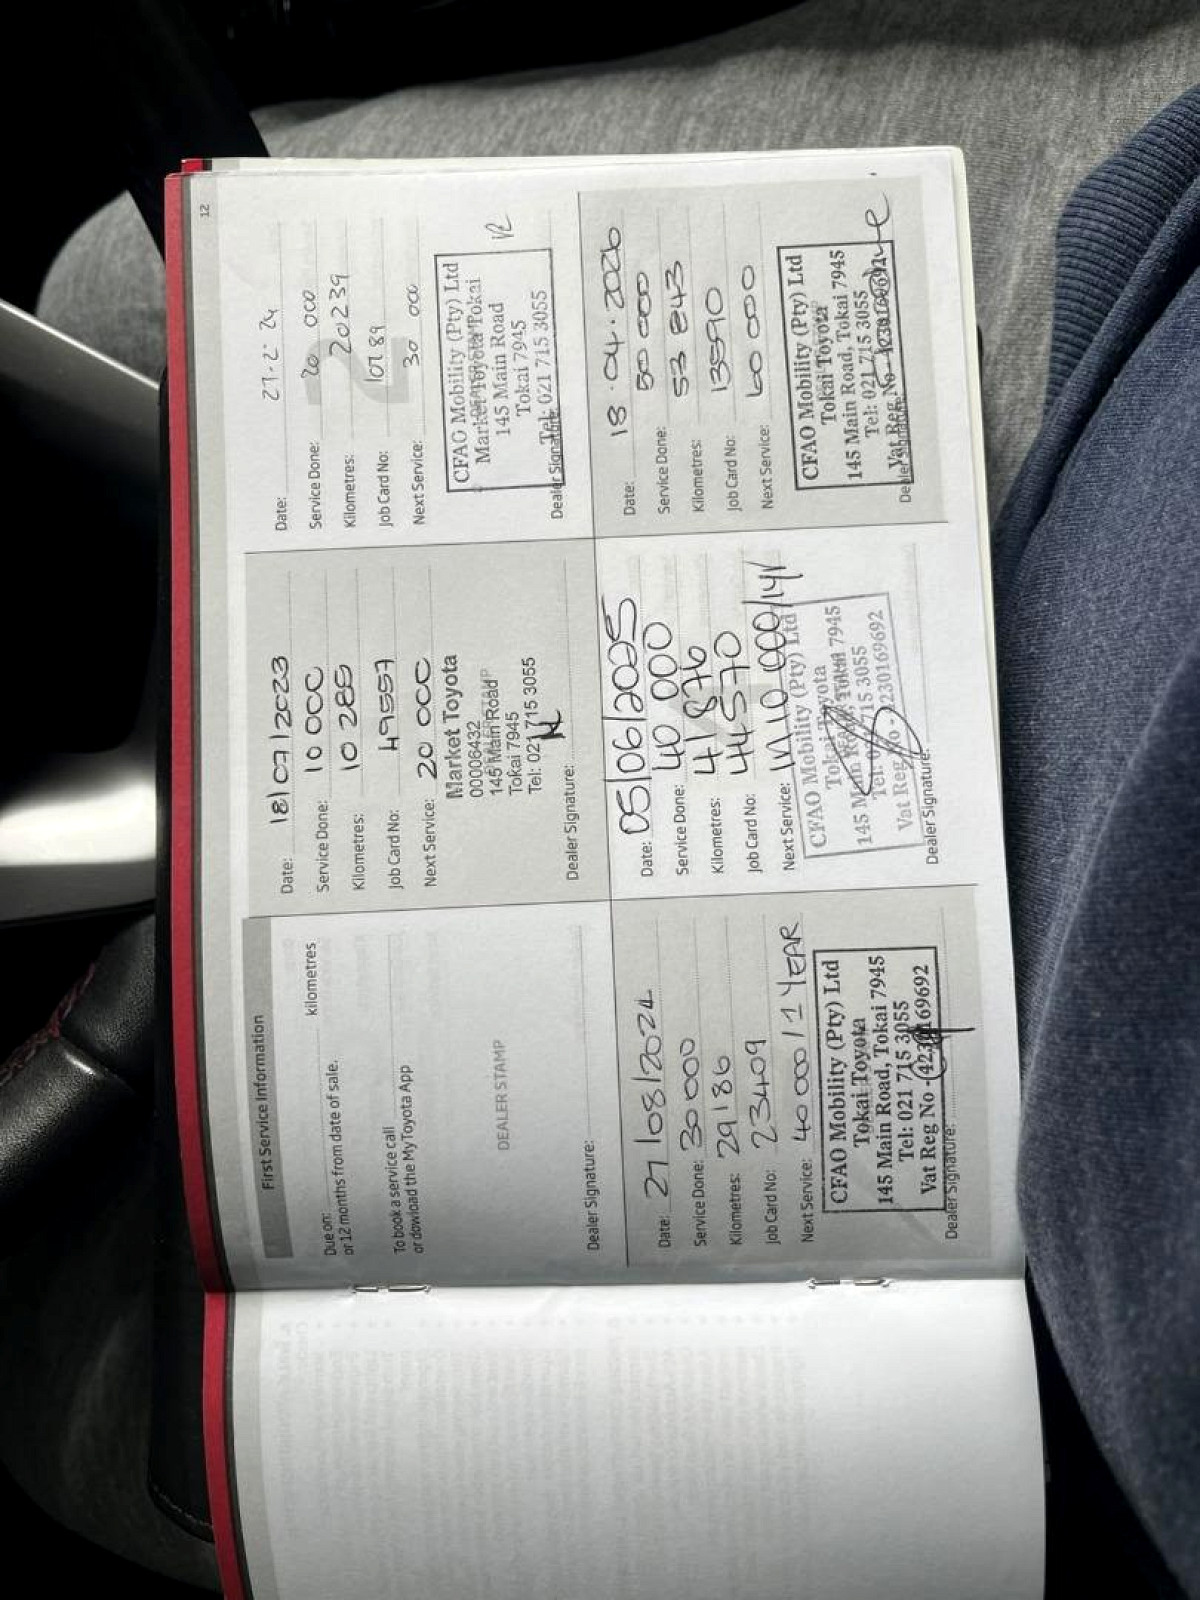 12
First Service Information
Due on: kilometres
or 12 months from date of sale.
To book a service call
or dowload the MyToyota App
DEALER STAMP
Dealer Signature:
Date: 18/07/2023
Service Done: 10 000
Kilometres: 10 285
Job Card No: 49557
Next Service: 20 000
Market Toyota
00006432
145 Main Road
Tokai 7945
Tel: 021 715 3055
Dealer Signature:
Date: 27-2-24
Service Done: 20 000
Kilometres: 20239
Job Card No: 10789
Next Service: 30 000
CFAO Mobility (Pty) Ltd
Market Toyota Tokai
145 Main Road
Tokai 7945
Tel: 021 715 3055
Dealer Signature:
Date: 27/08/2024
Service Done: 30000
Kilometres: 29186
Job Card No: 23409
Next Service: 40 000 / 1 YEAR
CFAO Mobility (Pty) Ltd
Tokai Toyota
145 Main Road, Tokai 7945
Tel: 021 715 3055
Vat Reg No - 4230169692
Dealer Signature:
Date: 05/06/2025
Service Done: 40 000
Kilometres: 41 876
Job Card No: 44570
Next Service:
CFAO Mobility (Pty) Ltd
Tokai Toyota
145 Main Road, Tokai 7945
Tel: 021 715 3055
Vat Reg No - 4230169692
Dealer Signature:
Date: 18.04.2026
Service Done: 50 000
Kilometres: 53 843
Job Card No: 13590
Next Service: 60 000
CFAO Mobility (Pty) Ltd
Tokai Toyota
145 Main Road, Tokai 7945
Tel: 021 715 3055
Vat Reg No - 4230169692
Dealer Signature: